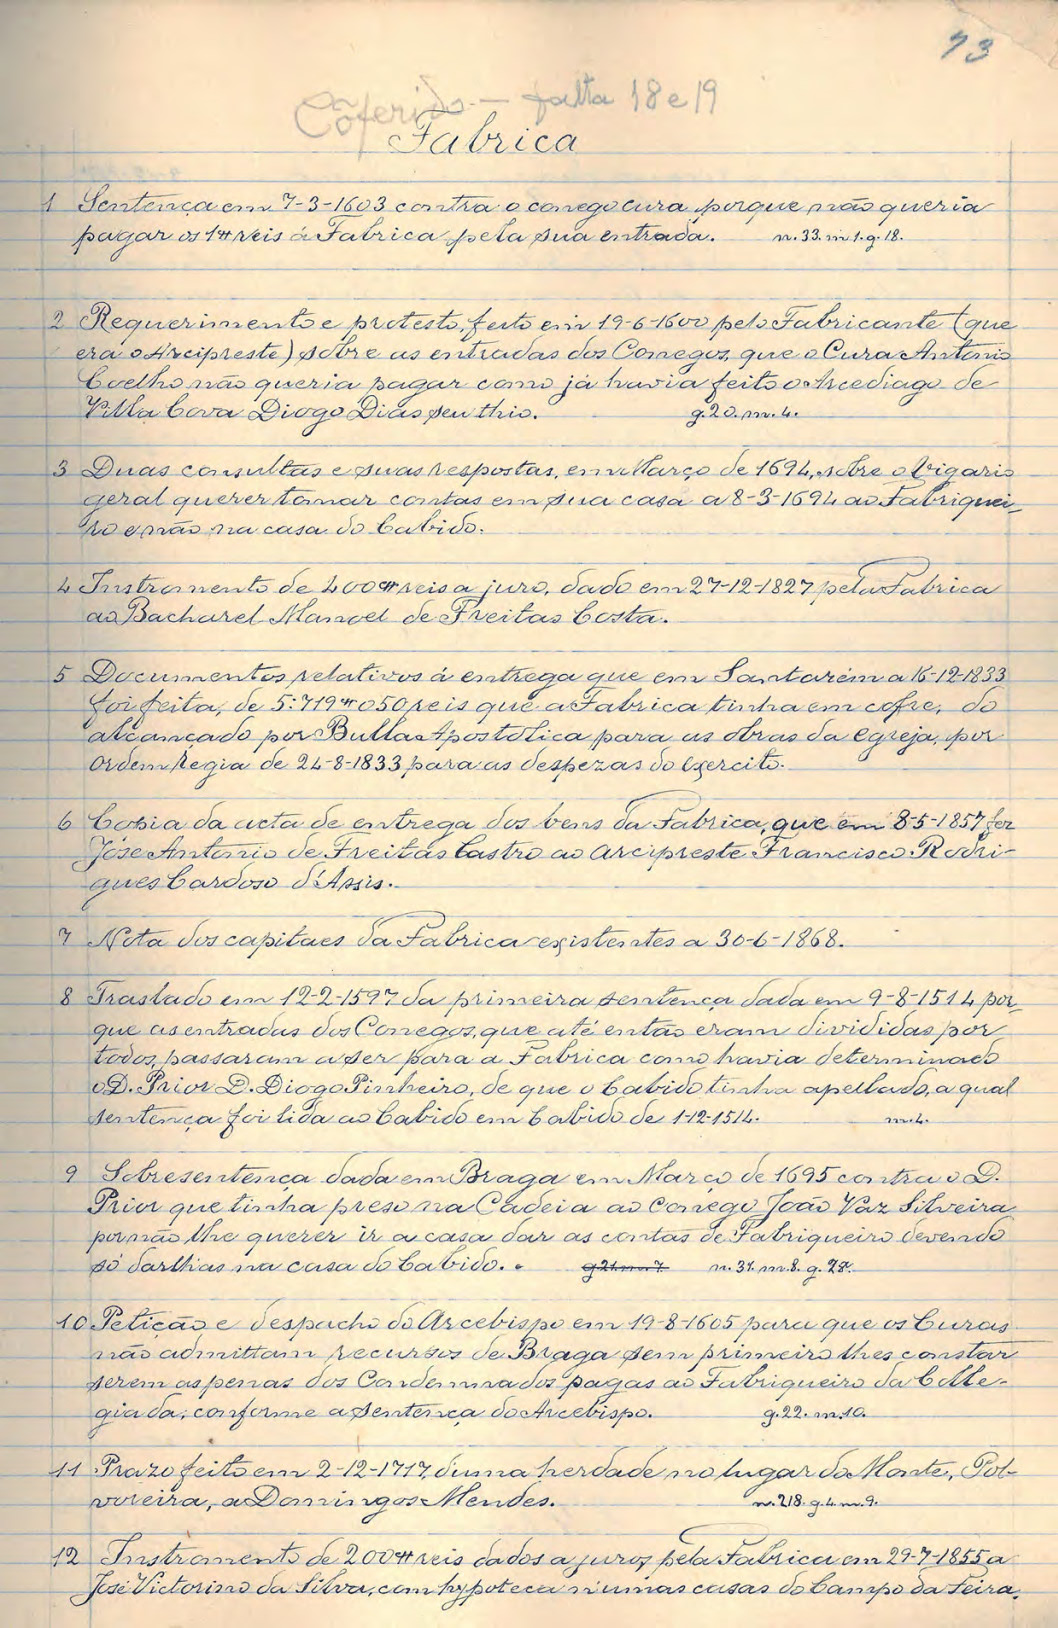 73
Coferido — falta 18 e 19
Fabrica
1 Sentença em 7-3-1603 contra o conego cura porque não queria
pagar os 1# reis á Fabrica pela sua entrada. n. 33. m. 1. g. 18.
2 Requerimento e protesto, feito em 19-6-1600 pelo Fabricante (que
era o Arcipreste) sobre as entradas dos Conegos, que o Cura Antonio
Coelho não queria pagar como já havia feito o Arcediago de
Villa Cova Diogo Dias seu thio. g. 20. m. 4.
3 Duas consultas e suas respostas, em Março de 1694, sobre o Vigario
geral querer tomar contas em sua casa a 8-3-1694 ao Fabriquei-
ro e não na casa do Cabido.
4 Instromento de 400# reis a juro, dado em 27-12-1827 pela Fabrica
ao Bacharel Manoel de Freitas Costa.
5 Documentos relativos á entrega que em Santarém a 16-12-1833
foi feita, de 5:719#050 reis que a Fabrica tinha em cofre, do
alcançado por Bulla Apostolica para as obras da egreja, por
Ordem Regia de 24-8-1833 para as despezas do Exercito.
6 Copia da acta de entrega dos bens da Fabrica, que em 8-5-1857 fez
José Antonio de Freitas Castro ao Arcipreste Francisco Rodri-
gues Cardoso d'Assis.
7 Nota dos capitaes da Fabrica existentes a 30-6-1868.
8 Traslado em 12-2-1597 da primeira sentença dada em 9-8-1514 por-
que as entradas dos Conegos, que até então eram divididas por
todos, passaram a ser para a Fabrica como havia determinado
o D. Prior D. Diogo Pinheiro, de que o Cabido tinha apellado, a qual
sentença foi lida ao Cabido em Cabido de 1-12-1514. m. 4.
9 Sobresentença dada em Braga em Março de 1695 contra o D.
Prior que tinha preso na Cadeia ao Conego João Vaz Silveira
por não lhe querer ir a casa dar as contas de Fabriqueiro devendo
só dar lhas na casa do Cabido. g 21 m. 7 n. 31. m. 8. g. 28.
10 Petição e despacho do Arcebispo em 19-8-1605 para que os Curas
não admittam recursos de Braga sem primeiro lhes constar
serem as penas dos Condemnados pagas ao Fabriqueiro da Colle-
giada, conforme a sentença do Arcebispo. g. 22. m. 10.
11 Prazo feito em 2-12-1717, d'uma herdade no lugar do Monte, Pol-
voreira, a Domingos Mendes. n. 218. g. 4. m. 9.
12 Instromento de 200# reis dados a juros pela Fabrica em 29-7-1855 a
José Victorino da Silva, com hypoteca n'umas casas do Campo da Feira.